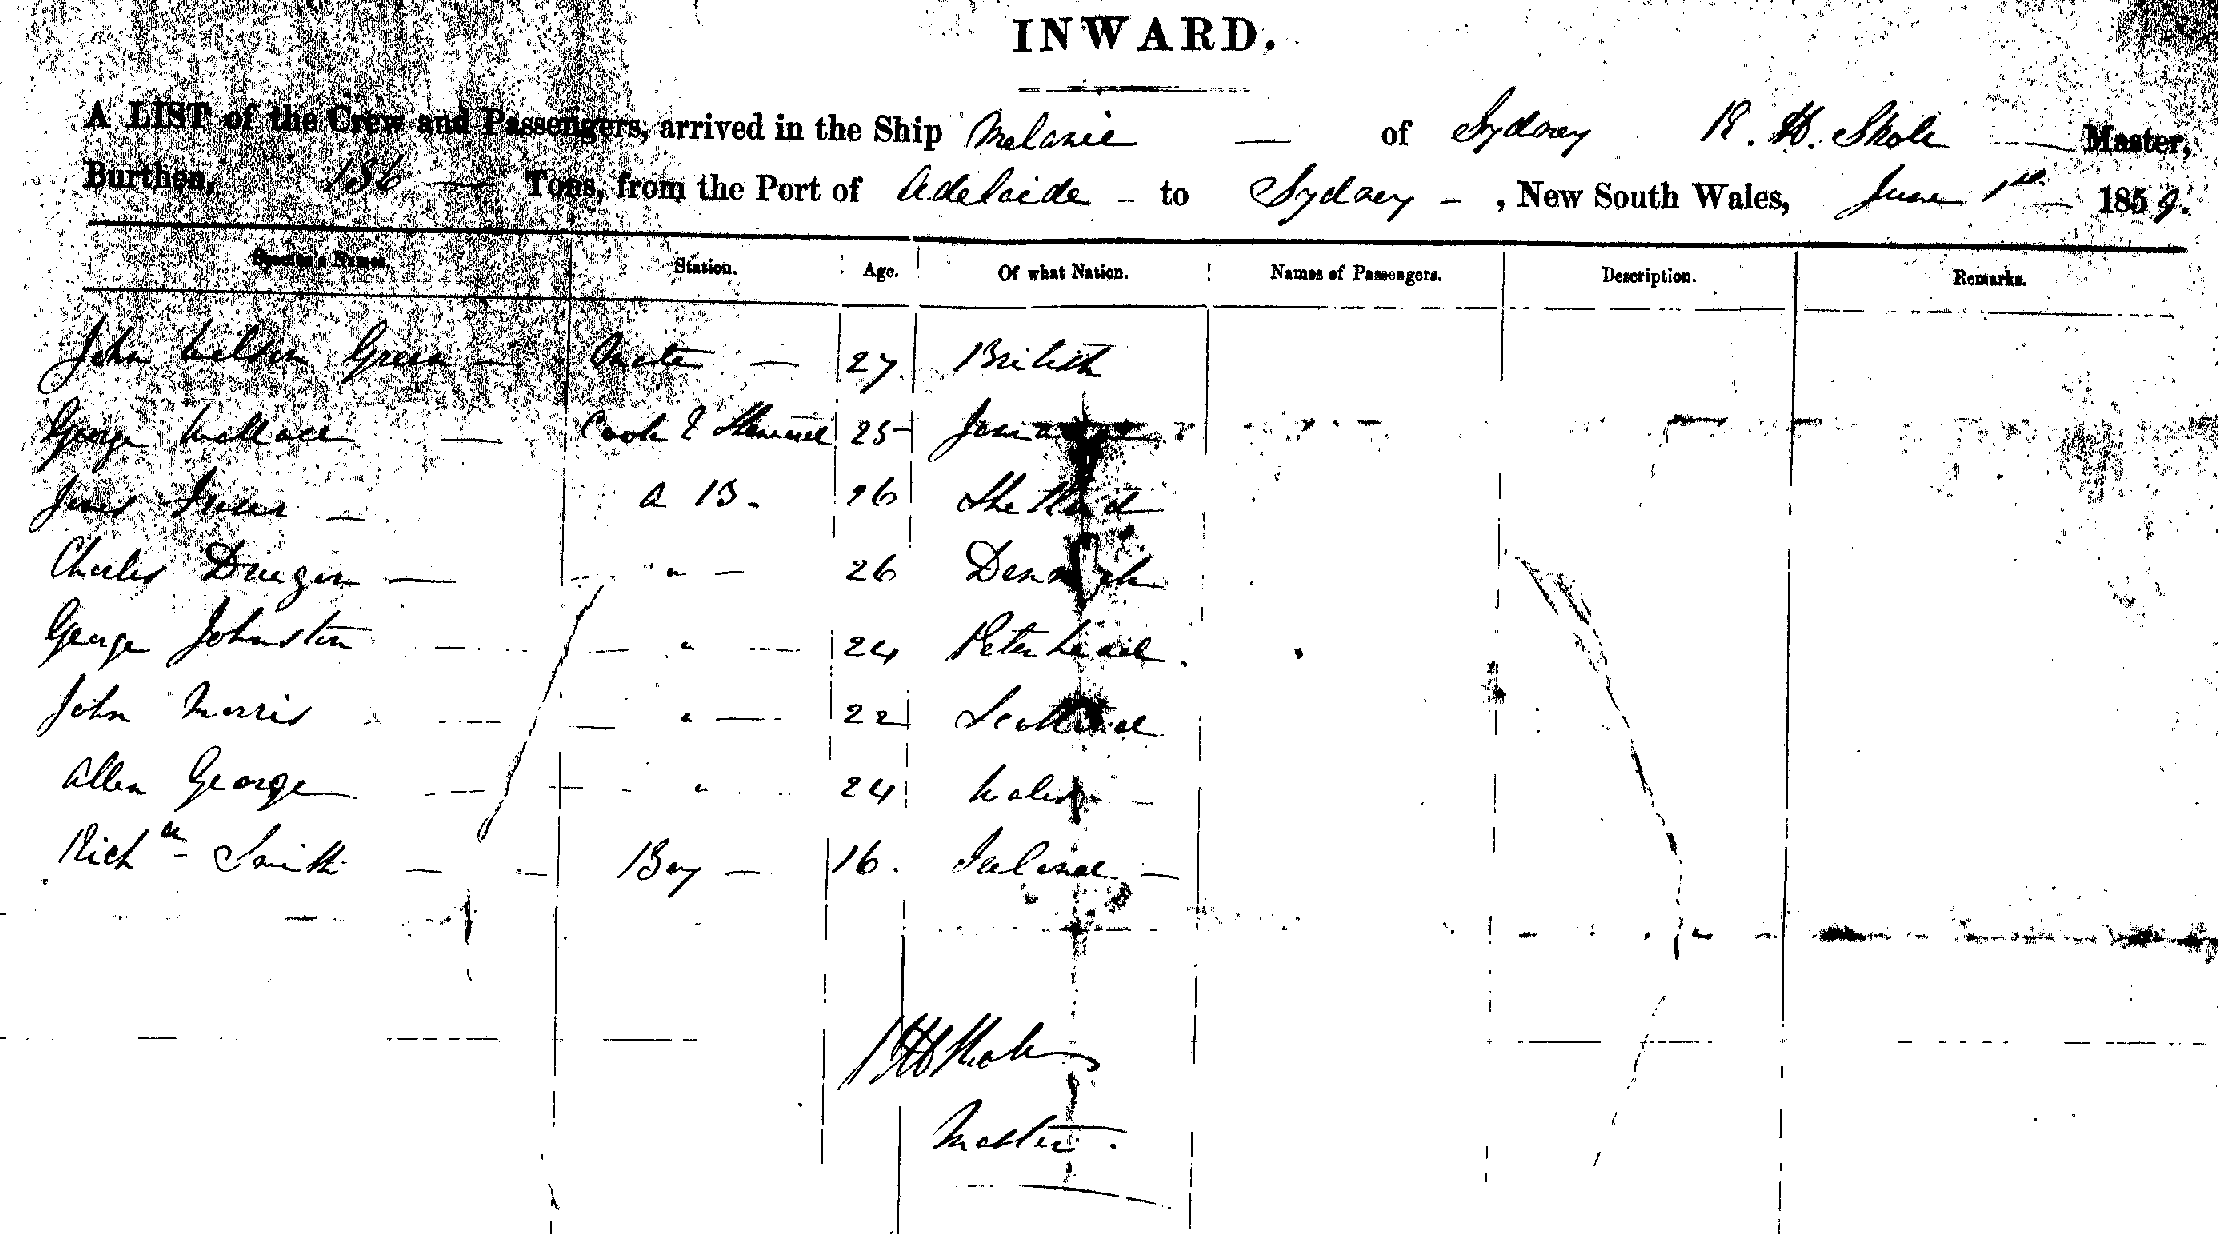 INWARD.
A LIST of the Crew and Passengers, arrived in the Ship Melanie — of Sydney R. H. Skole — Master,
Burthen, 136 — Tons, from the Port of Adelaide - to Sydney - , New South Wales, June 1st 1859.
Seaman's Names. Station. Age. Of what Nation. Names of Passengers. Description. Remarks.
John Green — Mate — 27 British
George Wallace — Cook & 25
James — A B. 26 Shetland
Charles — " — 26 Denmark
George Johnston — " — 24 Peterhead.
John Morris — " — 22 Scotland
Allen George — " 24 Wales —
Richd Smith — Boy — 16. Ireland —
R H Skole
Master.